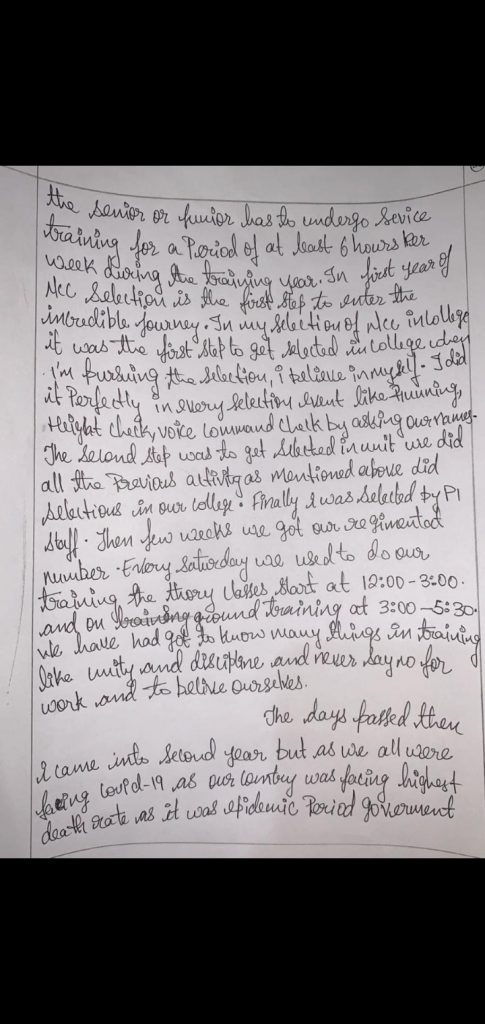 the senior or junior has to undergo Sevice
training for a Period of at least 6 hours Per
week during the training year. In first year of
Ncc Selection is the first step to enter the
incredible journey. In my selection of Ncc in College
it was the first step to get selected in college when
I'm pursuing the selection, i believe in myself. I did
it Perfectly in every selection event like Running,
Height check, voice command check by asking our names.
The second step was to get selected in unit we did
all the Previous activity as mentioned above did
selections in our college. Finally I was selected by PI
staff. Then few weeks we got our regimentod
number. Every Saturday we used to do our
training the thory classes start at 12:00-3:00.
and on training ground training at 3:00-5:30.
we have had got to know many things in training
like unity and disciplne and never say no for
work and to belive ourselves.
The days passed then
I came into second year but as we all were
facing Covid-19 as our country was facing highest
death rate as it was epidemic Period goverment